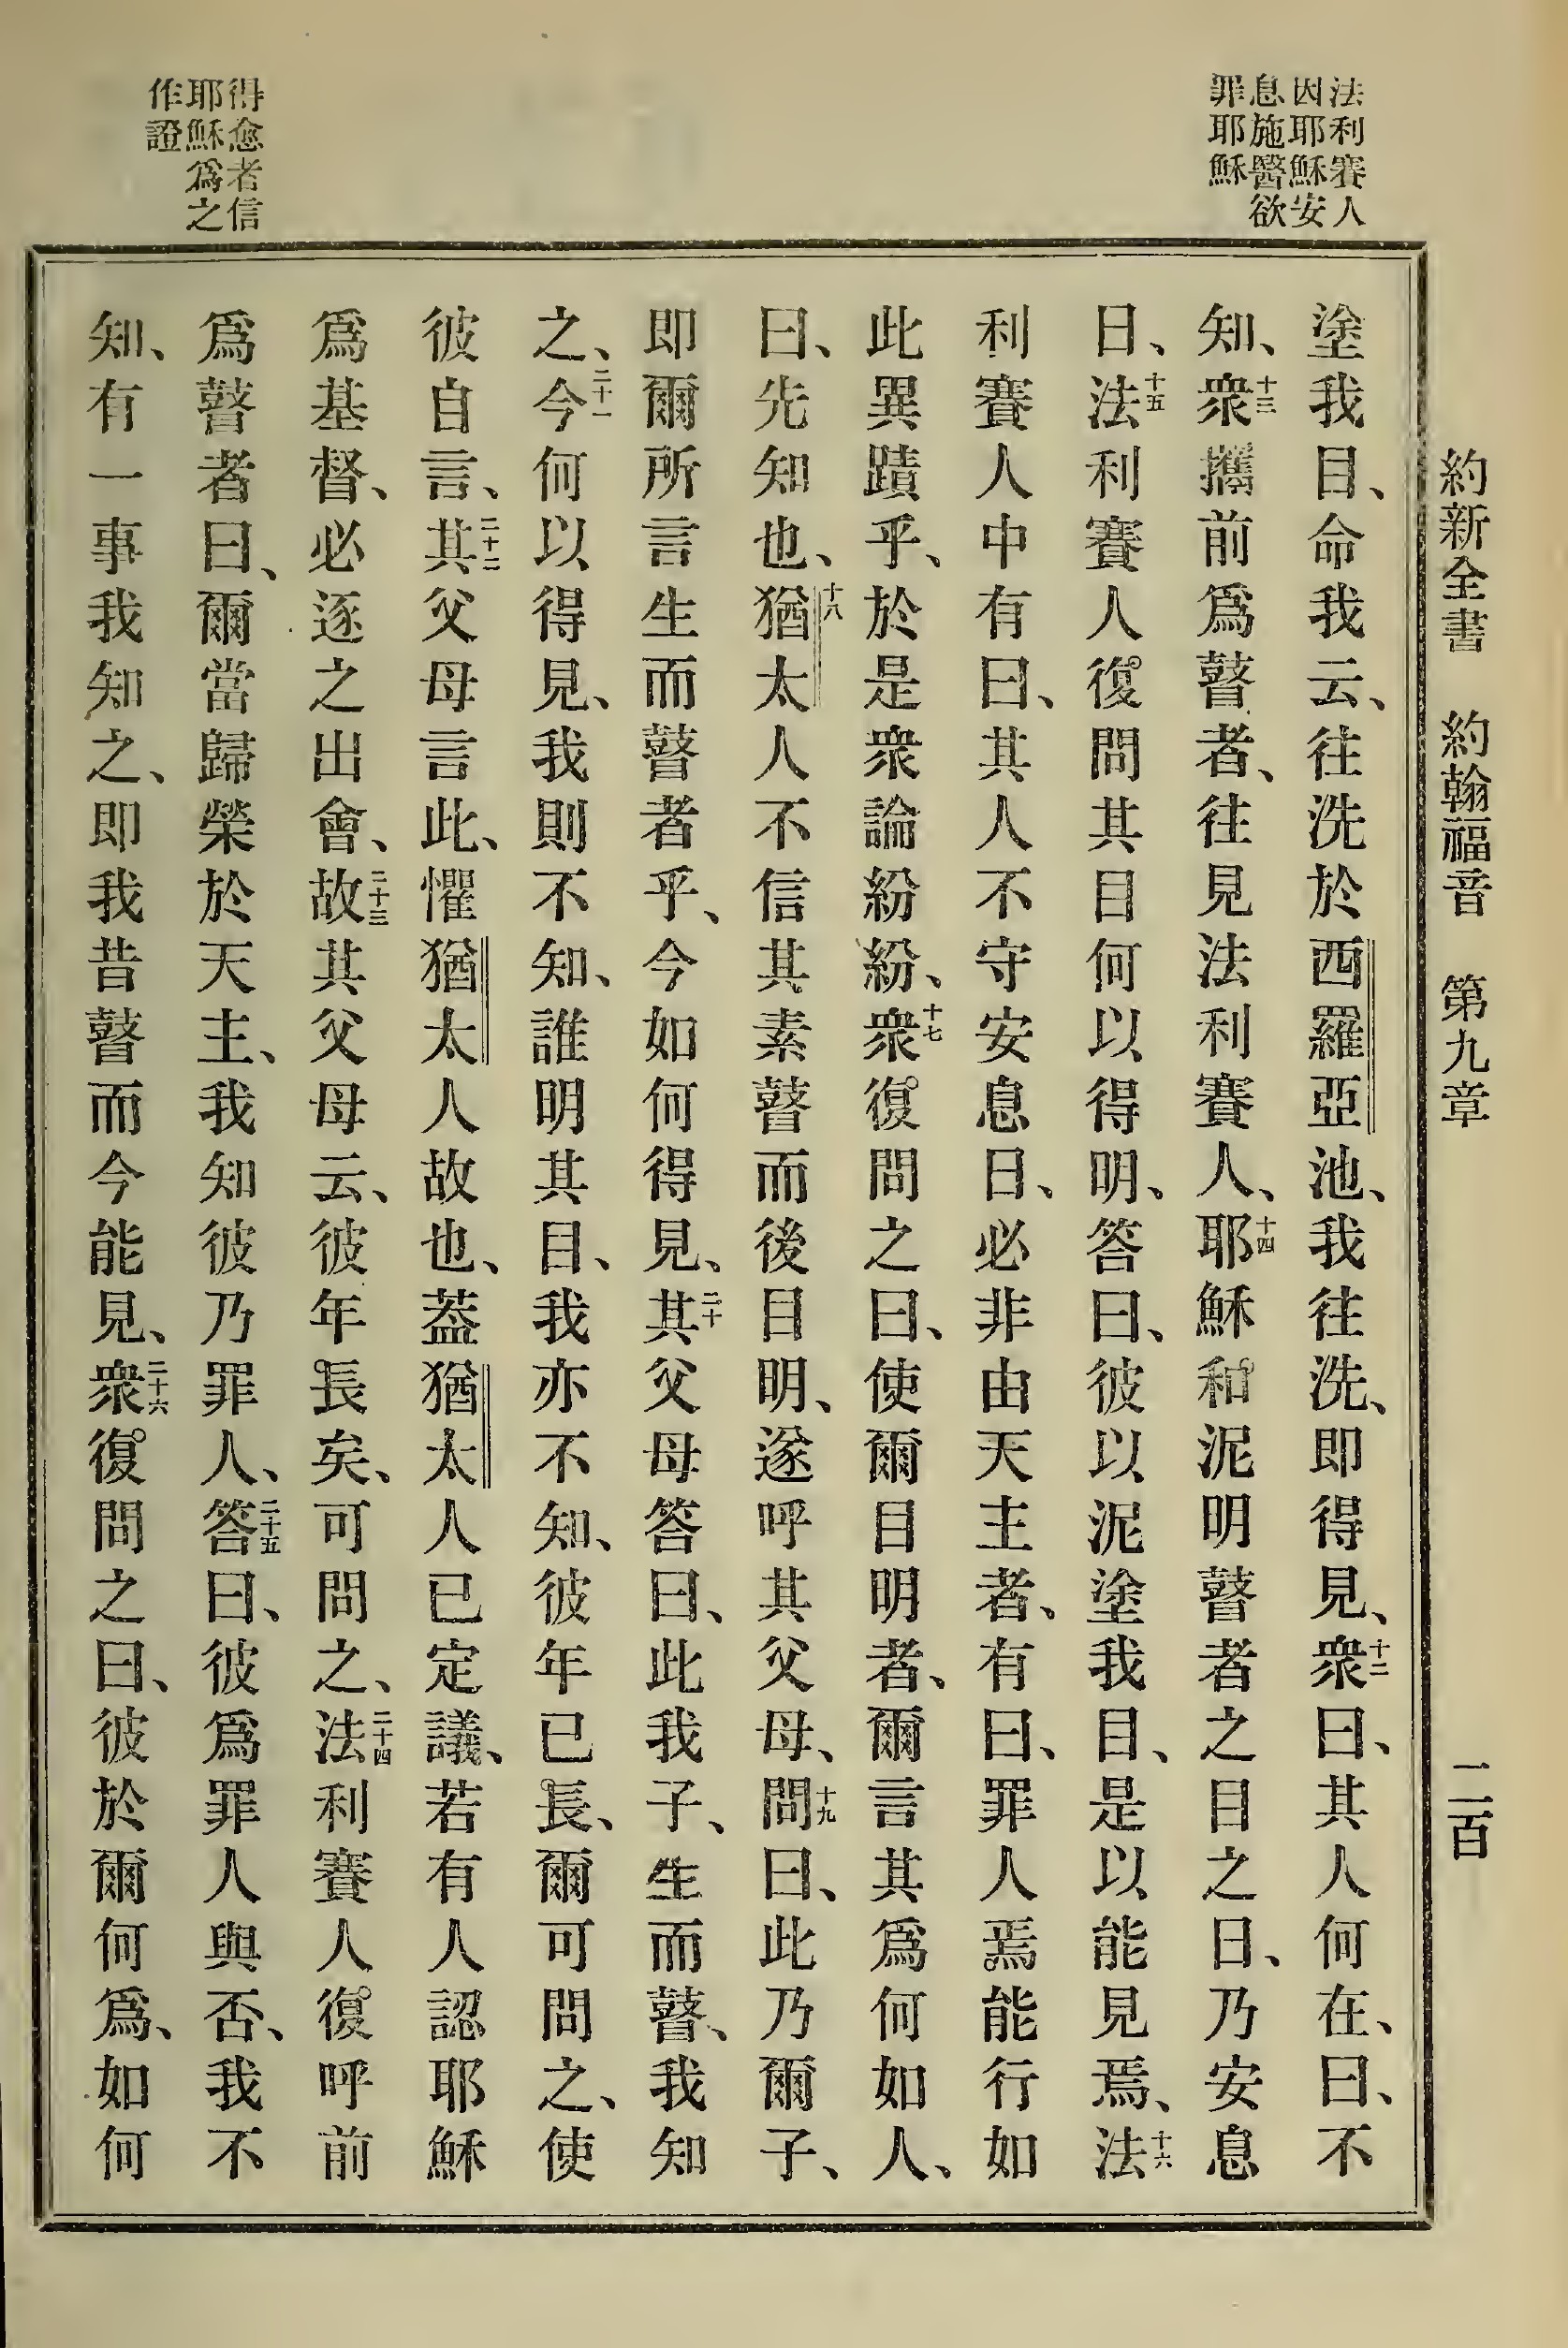 約新全書 約翰福音 第九章 二百
法利賽人
因耶穌安
息施醫欲
罪耶穌
得愈者信
耶穌爲之
作證
塗我目、命我云、往洗於西羅亞池、我往洗、即得見、十二衆曰、其人何在、曰、不
知、十三衆攜前爲瞽者、往見法利賽人、十四耶穌和泥明瞽者之目之日、乃安息
日、十五法利賽人復問其目何以得明、答曰、彼以泥塗我目、是以能見焉、十六法
利賽人中有曰、其人不守安息日、必非由天主者、有曰、罪人焉能行如
此異蹟乎、於是衆論紛紛、十七衆復問之曰、使爾目明者、爾言其爲何如人、
曰、先知也、十八猶太人不信其素瞽而後目明、遂呼其父母、十九問曰、此乃爾子、
即爾所言生而瞽者乎、今如何得見、二十其父母答曰、此我子、生而瞽、我知
之、二十一今何以得見、我則不知、誰明其目、我亦不知、彼年已長、爾可問之、使
彼自言、二十二其父母言此、懼猶太人故也、蓋猶太人已定議、若有人認耶穌
爲基督、必逐之出會、二十三故其父母云、彼年長矣、可問之、二十四法利賽人復呼前
爲瞽者曰、爾當歸榮於天主、我知彼乃罪人、二十五答曰、彼爲罪人與否、我不
知、有一事我知之、即我昔瞽而今能見、二十六衆復問之曰、彼於爾何爲、如何